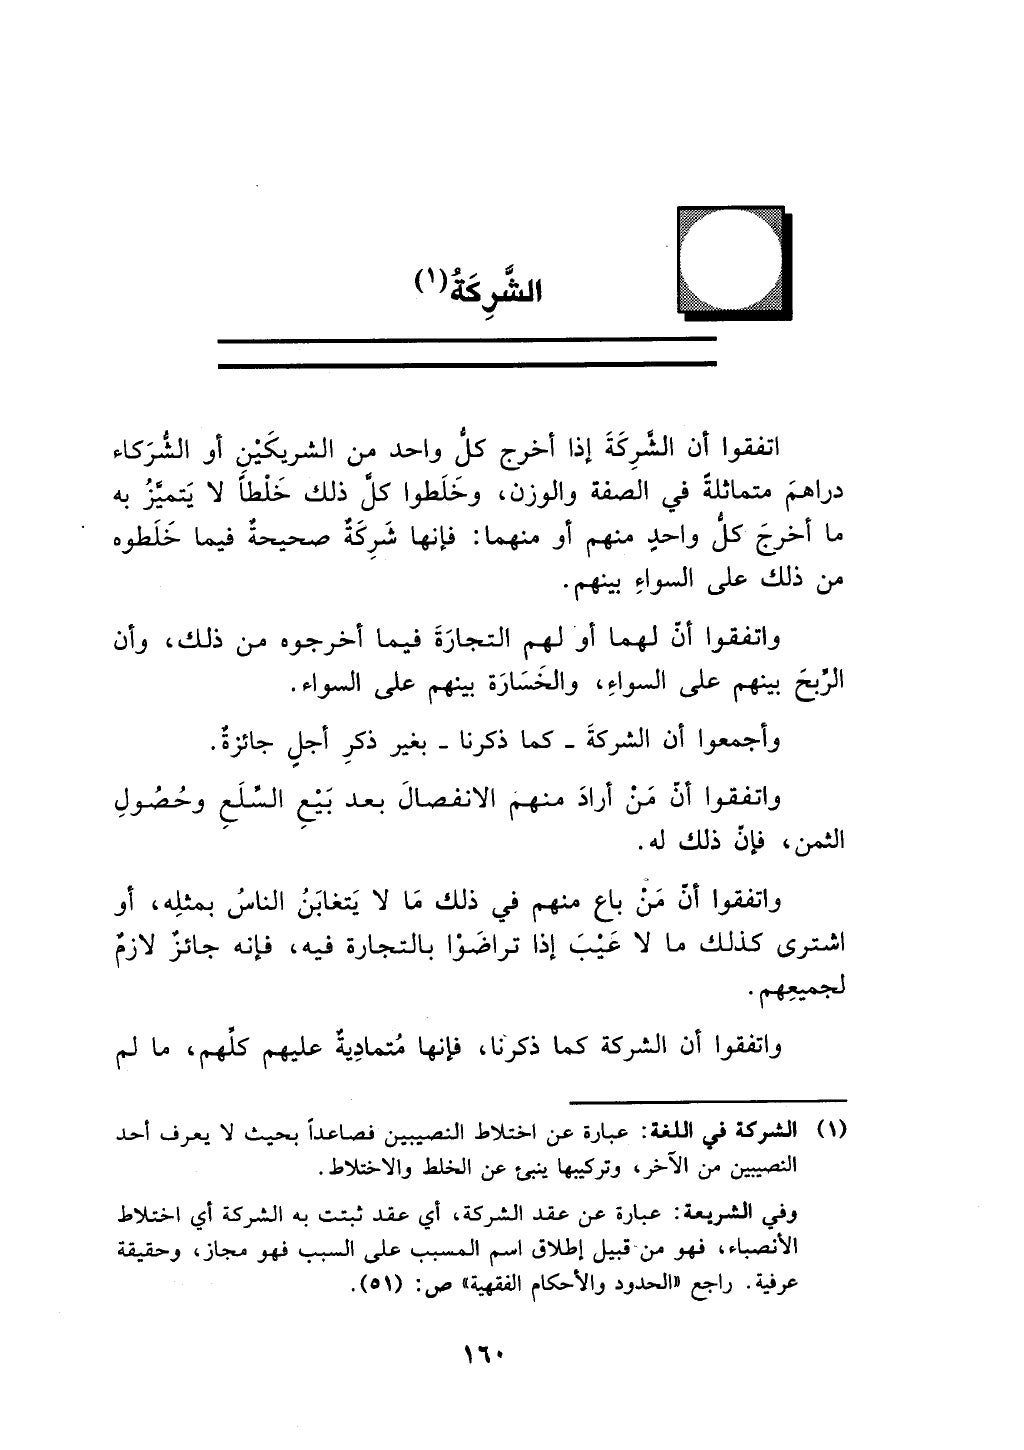 الشَّرِكَةُ(١)
اتفقوا أن الشَّرِكَةَ إذا أخرج كلُّ واحد من الشريكَيْنِ أو الشُّرَكاء
دراهمَ متماثلةً في الصفة والوزن، وخَلَطوا كلَّ ذلك خَلْطاً لا يَتميَّزُ به
ما أخرجَ كلُّ واحدٍ منهم أو منهما: فإنها شَرِكَةٌ صحيحةٌ فيما خَلَطوه
من ذلك على السواءِ بينهم.
واتفقوا أنّ لهما أو لهم التجارَةَ فيما أخرجوه من ذلك، وأن
الرِّبحَ بينهم على السواءِ، والخَسَارَة بينهم على السواء.
وأجمعوا أن الشركةَ ـ كما ذكرنا ـ بغير ذكرِ أجلٍ جائزةٌ.
واتفقوا أنّ مَنْ أرادَ منهم الانفصالَ بعد بَيْعِ السِّلَعِ وحُصُولِ
الثمن، فإنّ ذلك له.
واتفقوا أنّ مَنْ باع منهم في ذلك مَا لا يَتغابَنُ الناسُ بمثلِه، أو
اشترى كذلك ما لا عَيْبَ إذا تراضَوْا بالتجارة فيه، فإنه جائزٌ لازمٌ
لجميعِهم.
واتفقوا أن الشركة كما ذكرنا، فإنها مُتمادِيةٌ عليهم كلِّهم، ما لم
(١) الشركة في اللغة: عبارة عن اختلاط النصيبين فصاعداً بحيث لا يعرف أحد
النصيبين من الآخر، وتركيبها ينبئ عن الخلط والاختلاط.
وفي الشريعة: عبارة عن عقد الشركة، أي عقد ثبتت به الشركة أي اختلاط
الأنصباء، فهو من قبيل إطلاق اسم المسبب على السبب فهو مجاز، وحقيقة
عرفية. راجع «الحدود والأحكام الفقهية» ص: (٥١).
١٦٠